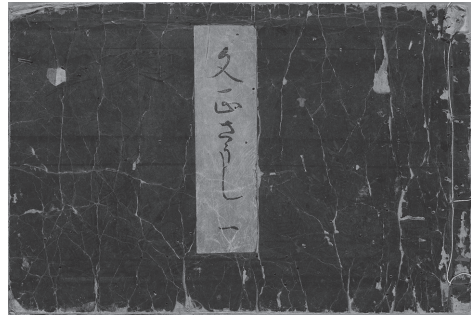 文正さうし 一